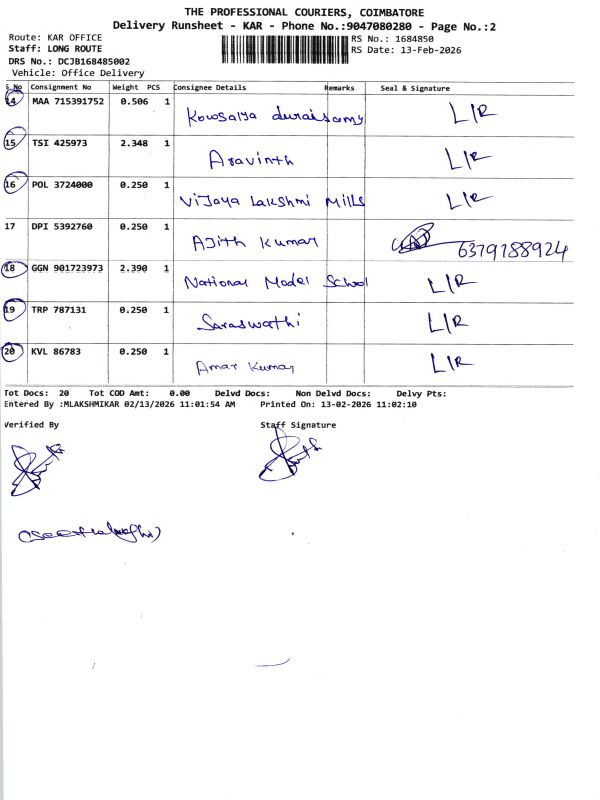 THE PROFESSIONAL COURIERS, COIMBATORE
Delivery Runsheet - KAR - Phone No.:9047080280 - Page No.:2
Route: KAR OFFICE RS No.: 1684850
Staff: LONG ROUTE RS Date: 13-Feb-2026
DRS No.: DCJB168485002
Vehicle: Office Delivery
S.No Consignment No Weight PCS Consignee Details Remarks Seal & Signature
14 MAA 715391752 0.506 1 Kowsalya duraisamy L/R
15 TSI 425973 2.348 1 Aravinth L/R
16 POL 3724000 0.250 1 Vijaya Lakshmi Mills L/R
17 DPI 5392760 0.250 1 Ajith Kumar 6379788924
18 GGN 901723973 2.390 1 National Model School L/R
19 TRP 787131 0.250 1 Saraswathi L/R
20 KVL 86783 0.250 1 Amar Kumar L/R
Tot Docs: 20 Tot COD Amt: 0.00 Delvd Docs: Non Delvd Docs: Delvy Pts:
Entered By :MLAKSHMIKAR 02/13/2026 11:01:54 AM Printed On: 13-02-2026 11:02:10
Verified By Staff Signature